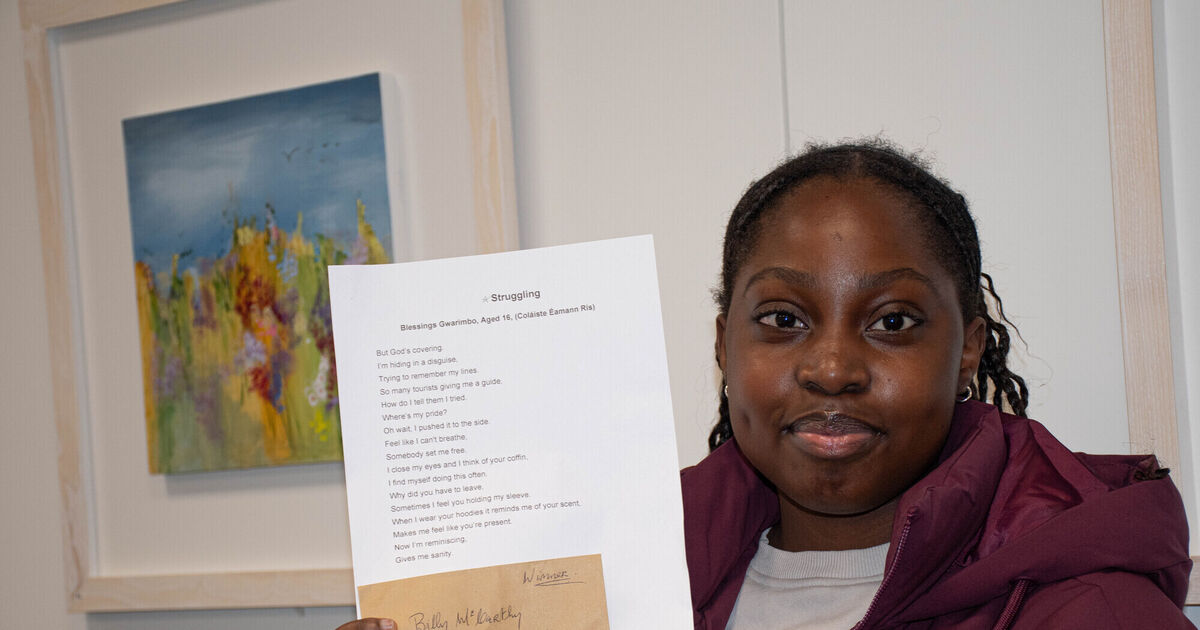 ☆Struggling
Blessings Gwarimbo, Aged 16, (Coláiste Éamann Rís)
But God's covering.
I'm hiding in a disguise,
Trying to remember my lines.
So many tourists giving me a guide,
How do I tell them I tried.
Where's my pride?
Oh wait, I pushed it to the side.
Feel like I can't breathe,
Somebody set me free.
I close my eyes and I think of your coffin,
I find myself doing this often.
Why did you have to leave.
Sometimes I feel you holding my sleeve.
When I wear your hoodies it reminds me of your scent,
Makes me feel like you're present.
Now I'm reminiscing,
Gives me sanity.
Winner.
Billy McCarthy